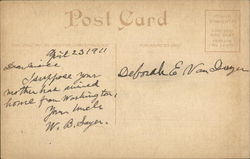 Post Card
April 23 1911
Dear Niece
I suppose your
mother has arrived
home from Washington,
Your Uncle
W. B. Sayer.
Deborah E. Van Duyer